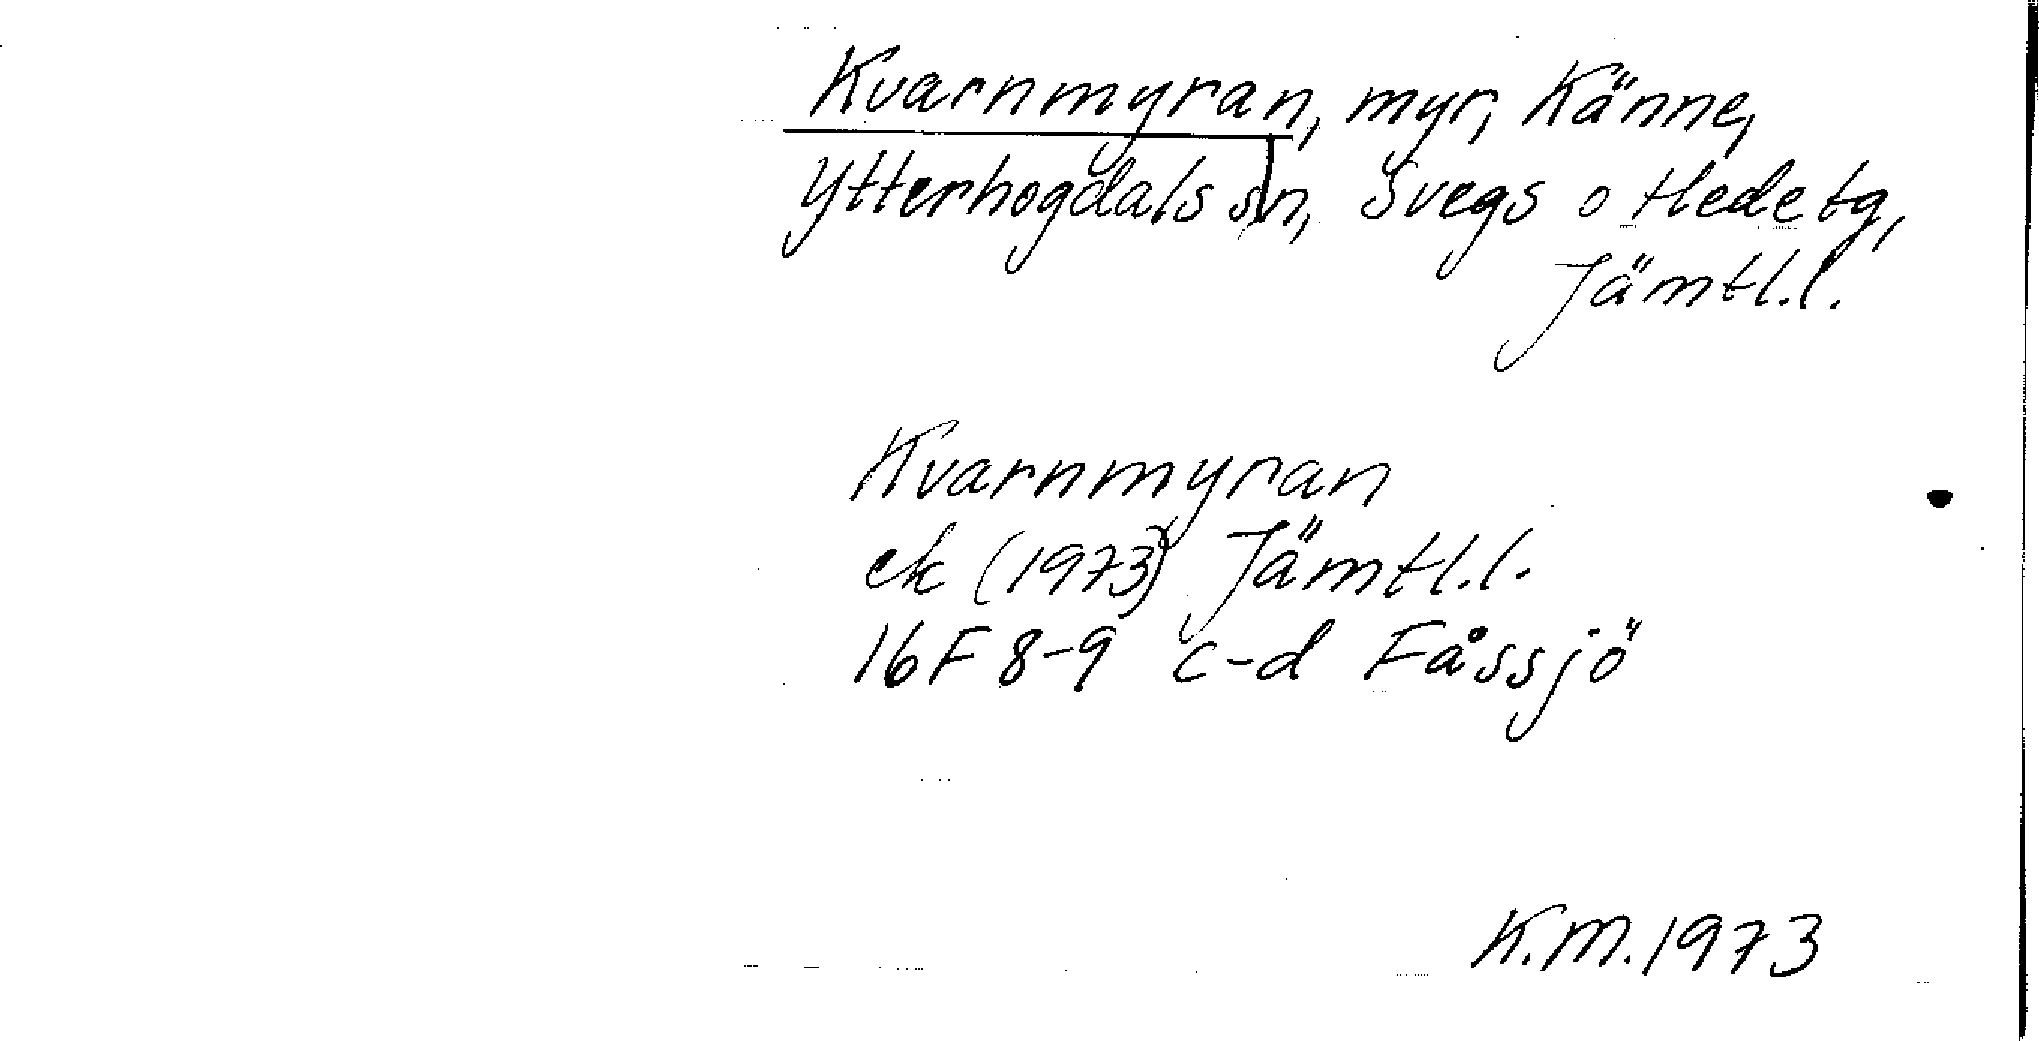 Kvarnmyran, myr, Känne,
Ytterhogdals sn, Svegs o Hede tg,
Jämtl.l.
Kvarnmyran
ek (1973) Jämtl.l.
16F 8-9 c-d Fåssjö
K.M.1973